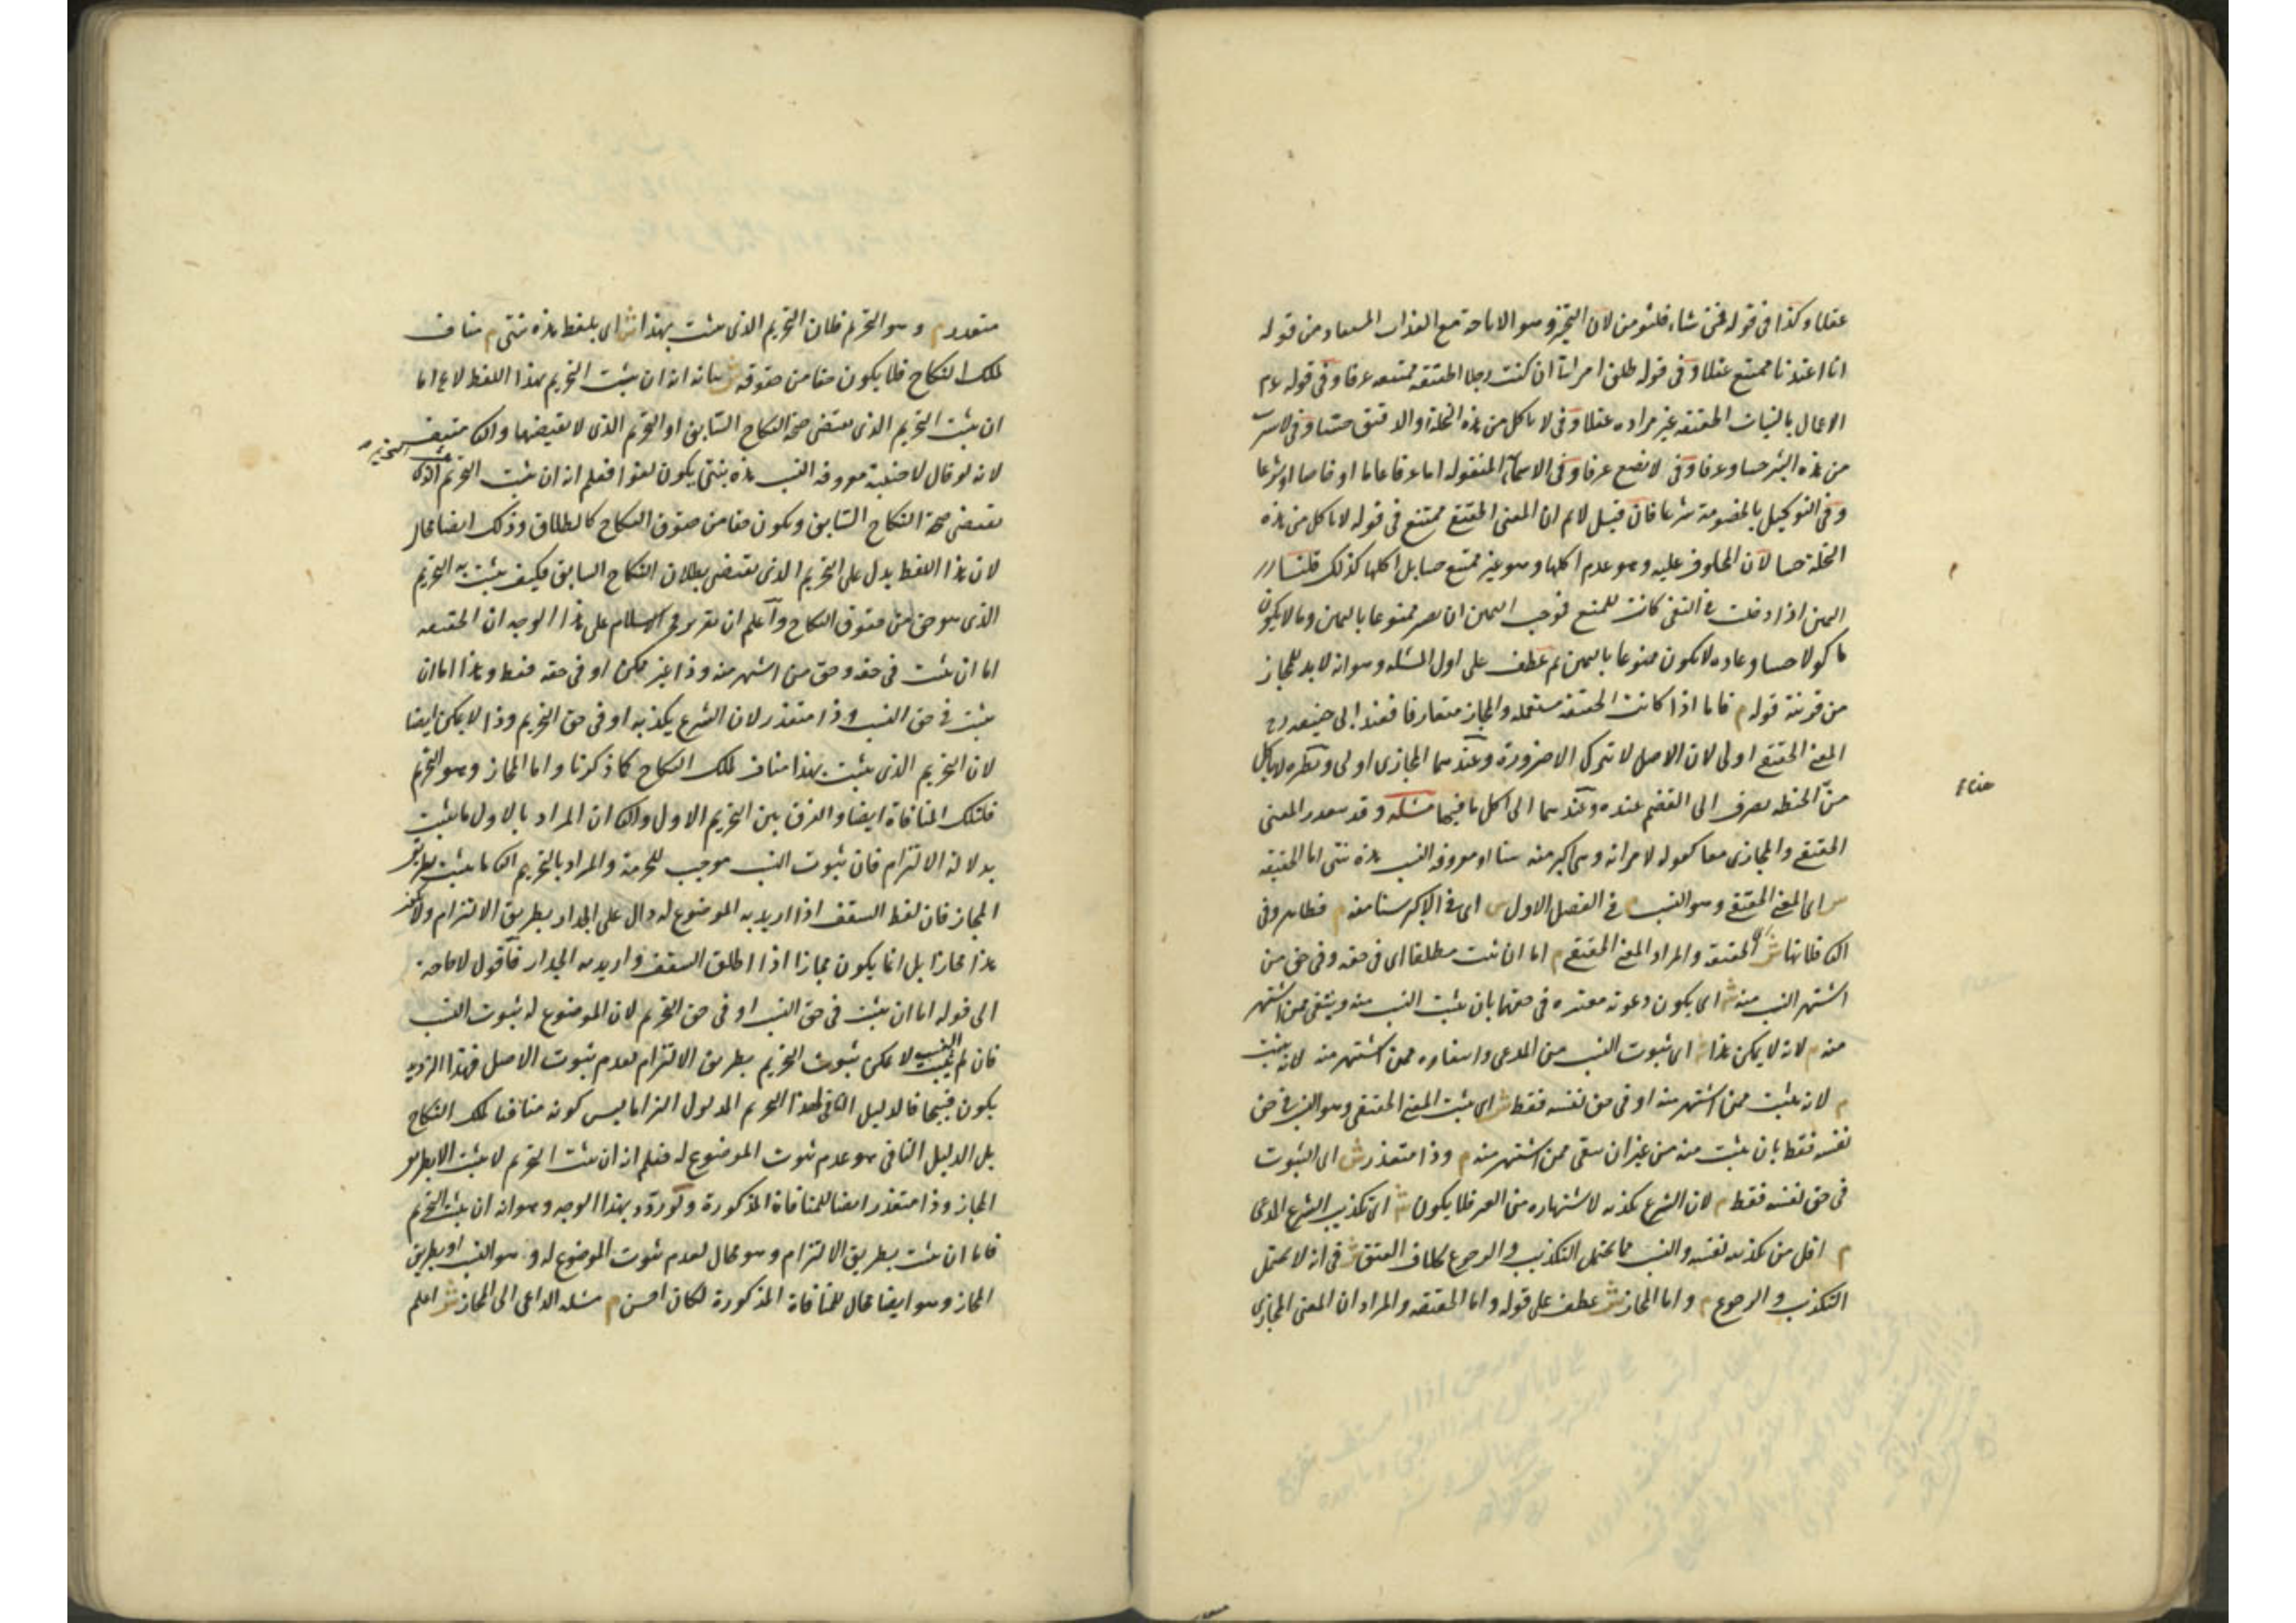 عقلا وكذا في قوله فمن شاء فليؤمن لان التخيير وهو الاباحة مع العذاب المستفاد من قوله
انا اعتدنا ممتنع عقلا وفي قوله طلق امراتي ان كنت رجلا الحقيقة ممتنعه عرفا وفي قوله عم
الاعمال بالنيات الحقيقة غير مراده عقلا وفي لا ياكل من هذه النخلة او الدقيق حسا وفي لا يشرب
من هذه البئر حسا وعرفا وفي لا يضع عرفا وفي الاسماء المنقوله اما عرفا عاما او خاصا او شرعا
وفي التوكيل بالخصومة شرعا فان قيل لا نم ان المعنى الحقيقي ممتنع في قوله لا ياكل من هذه
النخلة حسا لان المحلوف عليه وهو عدم اكلها وهو غير ممتنع حسا بل اكلها كذلك قلنا
اليمين اذا دخلت في النفي كانت للمنع فوجب اليمين ان يصير ممنوعا باليمين وما لا يكون
ماكولا حسا وعاده لا يكون ممنوعا باليمين ثم عطف على اول المسئله وهو انه لا بد للمجاز
من قرينة قوله م فاما اذا كانت الحقيقه مستعمله والمجاز متعارفا فعند ابي حنيفه رح
المعنى الحقيقي اولى لان الاصل لا يترك الا ضرورة وعندهما المجازي اولى ونظيره لا ياكل
من الحنطه يصرف الى القضم عنده وعندهما الى اكل ما فيها مسئله وقد يتعذر المعنى
الحقيقي والمجازي معا كقوله لامراته وهي اكبر منه سنا او معروفه النسب هذه بنتي اما الحقيقه
ش اي المعنى الحقيقي وهو النسب م في الفصل الاول ش اي في الاكبر سنا منه م فظاهر وفي
الثاني فلانها ش اي الحقيقة والمراد المعنى الحقيقي م اما ان تثبت مطلقا اي في حقه وفي حق من
اشتهر النسب منه ش اي يكون دعوته معتبره في حقهما بان يثبت النسب منه وينتفي ممن اشتهر
منه م لانه لا يمكن هذا ش اي ثبوت النسب من المدعي وانتفاؤه ممن اشتهر منه لانه يثبت
م لانه يثبت ممن اشتهر منه او في حق نفسه فقط ش اي يثبت المعنى الحقيقي وهو النسب في حق
نفسه فقط بان يثبت منه من غير ان ينتفي ممن اشتهر منه م وذا متعذر ش اي الثبوت
في حق نفسه فقط م لان الشرع يكذبه لاشتهاره من الغير فلا يكون ش اي تكذيب الشرع المدعي
م اقل من تكذيبه نفسه والنسب مما يحتمل التكذيب والرجوع بخلاف العتق ش في انه لا يحتمل
التكذيب والرجوع م واما المجاز ش عطف على قوله واما الحقيقه والمراد ان المعنى المجازي
متعذر م وهو التحريم فلان التحريم الذي يثبت بهذا ش اي بلفظ هذه بنتي م مناف
لملك النكاح فلا يكون حقا من حقوقه ش بيانه انه ان يثبت التحريم بهذا اللفظ لا يخ اما
ان يثبت التحريم الذي يقتضي صحة النكاح السابق او التحريم الذي لا يقتضيها والثاني منتف
لانه لو قال لاجنبية معروفه النسب هذه بنتي يكون لغوا فعلم انه ان يثبت التحريم يثبت التحريم الذي
يقتضي صحة النكاح السابق ويكون حقا من حقوق النكاح كالطلاق وذلك ايضا محال
لان هذا اللفظ يدل على التحريم الذي يقتضي بطلان النكاح السابق فكيف يثبت به التحريم
الذي هو حق من حقوق النكاح واعلم ان تقرير فخر الاسلام على هذا الوجه ان الحقيقه
اما ان تثبت في حقه وحق من اشتهر منه وذا غير ممكن او في حقه فقط وهذا اما ان
يثبت في حق النسب وذا متعذر لان الشرع يكذبه او في حق التحريم وذا لا يمكن ايضا
لان التحريم الذي يثبت بهذا مناف لملك النكاح كما ذكرنا واما المجاز وهو التحريم
فلتلك المنافاة ايضا والفرق بين التحريم الاول والثاني ان المراد بالاول ما يثبت
بدلالة الالتزام فان ثبوت النسب موجب للحرمة والمراد بالتحريم الثاني ما يثبت بطريق
المجاز فان لفظ السقف اذا اريد به الموضوع له دال على الجدار بطريق الالتزام ولا يكون
هذا مجازا بل انما يكون مجازا اذا اطلق السقف واريد به الجدار فاقول لا حاجة
الى قوله اما ان يثبت في حق النسب او في حق التحريم لان الموضوع له ثبوت النسب
فان لم يثبت النسب لا يمكن ثبوت التحريم بطريق الالتزام لعدم ثبوت الاصل فهذا الترديد
يكون قبيحا فالدليل النافي لهذا التحريم المدلول التزاما ليس كونه منافيا لملك النكاح
بل الدليل النافي هو عدم ثبوت الموضوع له فعلم انه ان يثبت التحريم لا يثبت الا بطريق
المجاز وذا متعذر ايضا للمنافاة المذكورة ولو ردد بهذا الوجه وهو انه ان يثبت التحريم
فاما ان يثبت بطريق الالتزام وهو محال لعدم ثبوت الموضوع له وهو النسب او بطريق
المجاز وهو ايضا محال للمنافاة المذكورة لكان احسن م مسئله الداعي الى المجاز ش اعلم